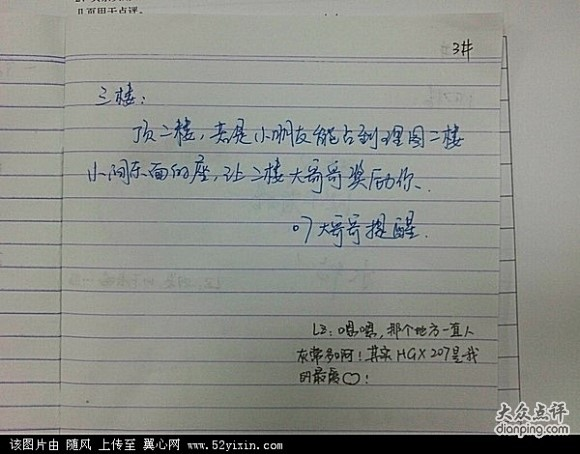 几页用于点评。
3#
三楼：
顶二楼，若是小朋友能占到理图二楼
小间东面的座，让二楼大哥哥奖励你、
07大哥哥提醒.
LZ：嗯嗯，那个地方一直人
灰常多啊！其实HGX207是我
的最爱♡！
大众点评
dianping.com
该图片由 随风 上传至 翼心网 www.52yixin.com